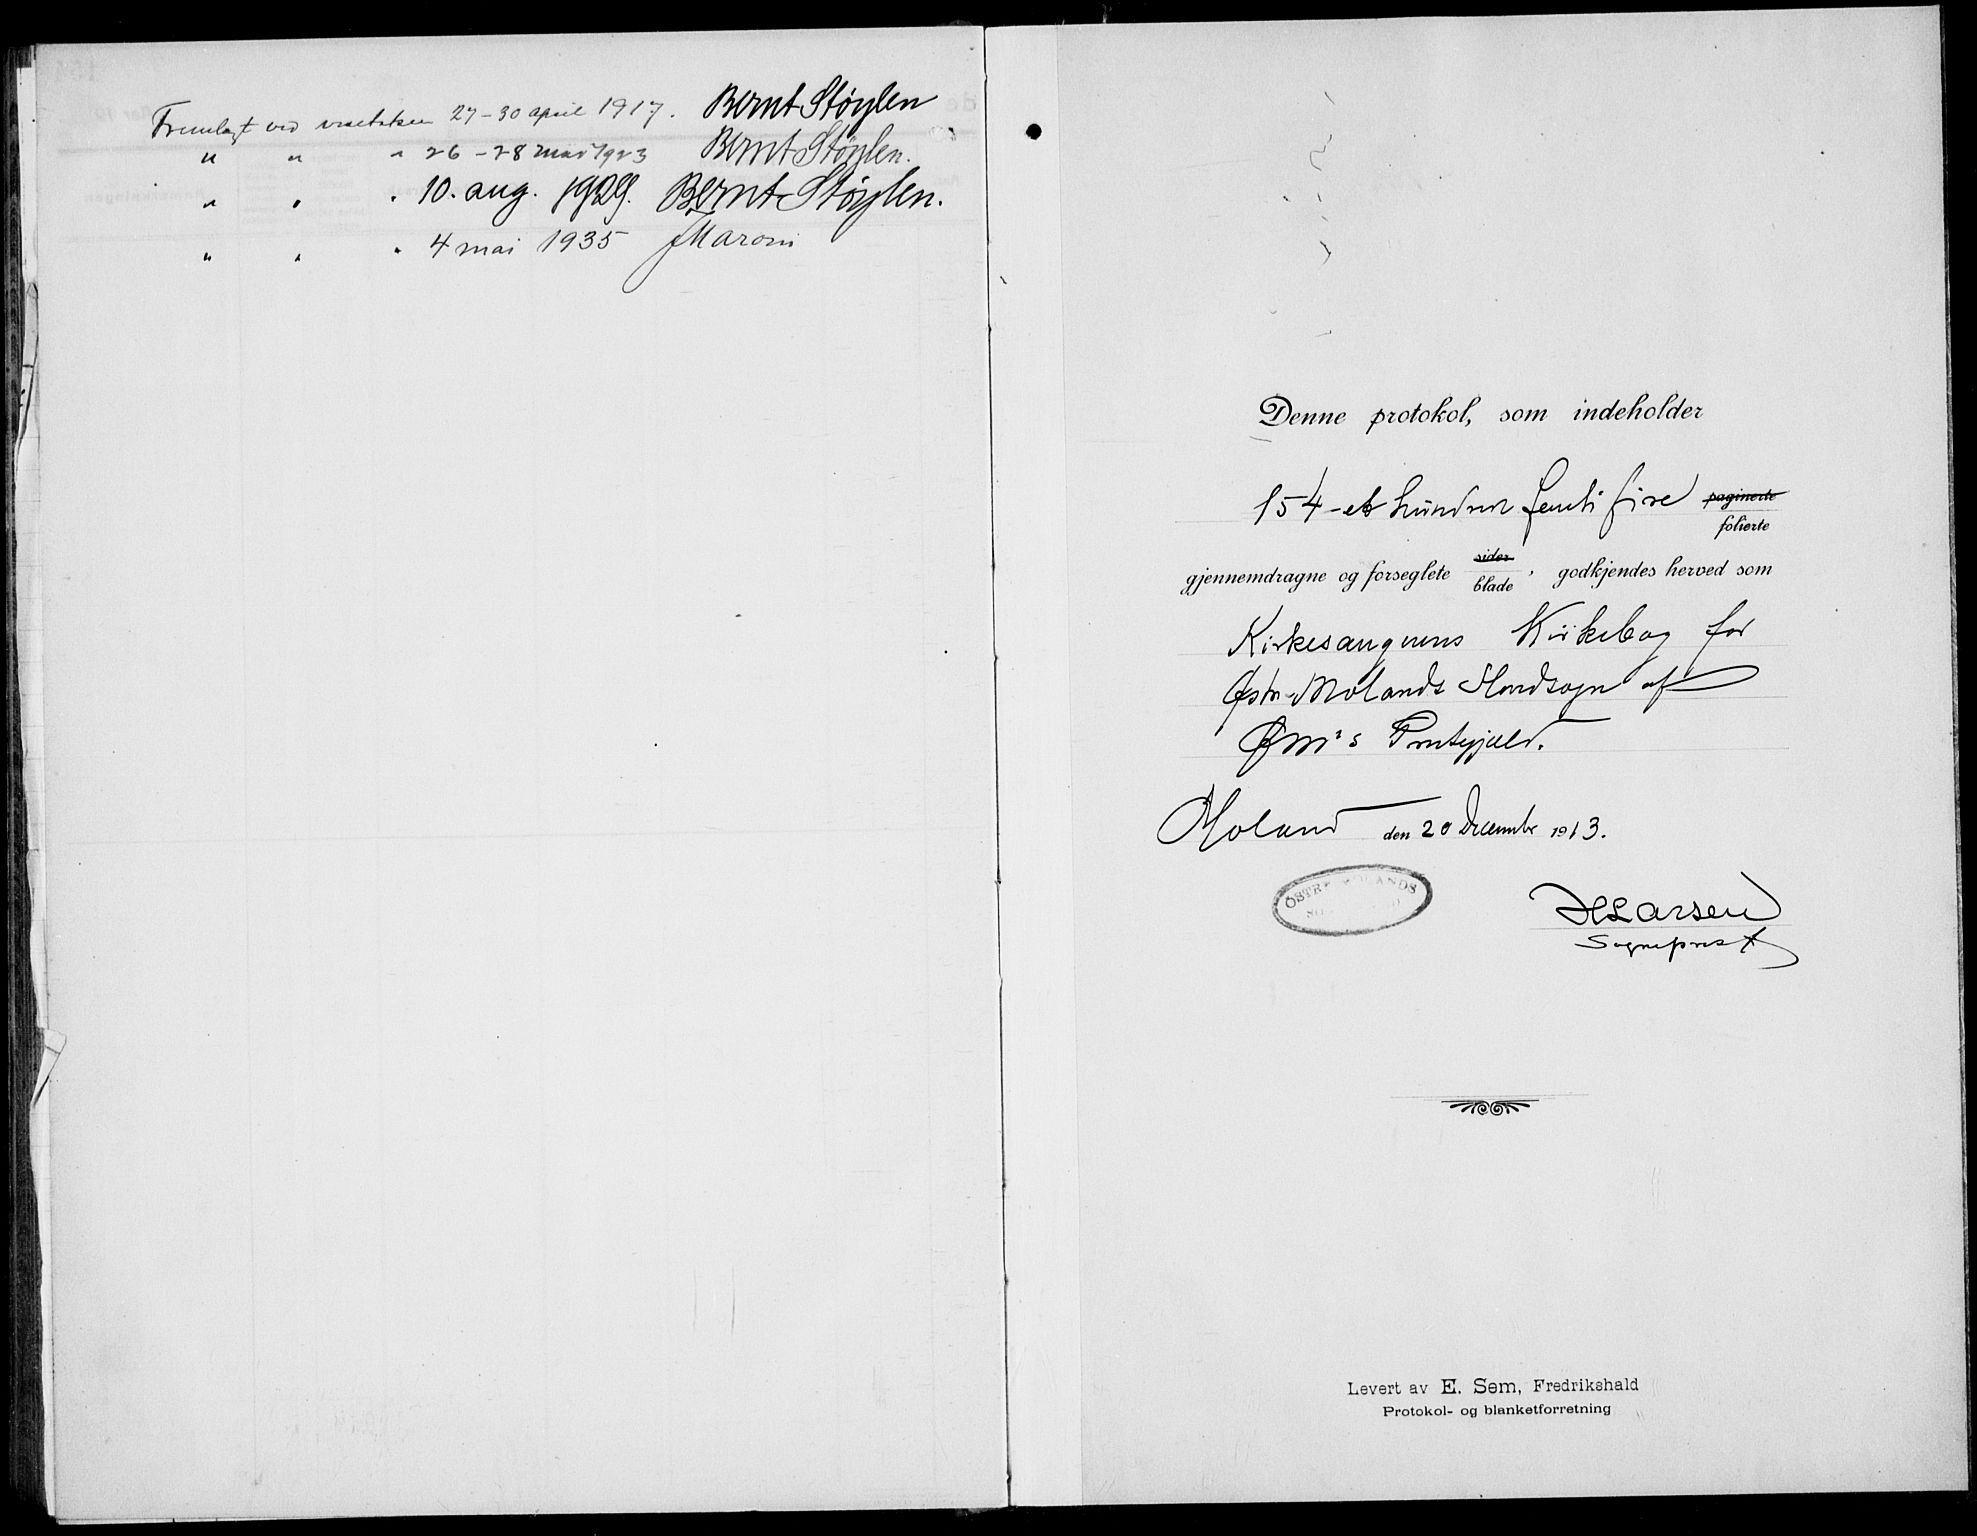 Fremlagt ved visitatsen 27-30 april 1917. Bernt Støylen
" " " 26-28 mai 1923 Bernt Støylen.
" " " 10. aug. 1929. Bernt Støylen.
" " " 4 mai 1935 J Maroni
Denne protokol, som indeholder
154 - et hundred femti fire paginerte
folierte
gjennemdragne og forseglete sider
blade, godkjendes herved som
Kirkesangerens Kirkebog for
Østre Molands Hovdsogn af
ØM's Prestegjæld.
Moland den 20 December 1913.
ØSTRE MOLANDS
HLarsen
Sogneprest
Levert av E. Sem, Fredrikshald
Protokol- og blanketforretning